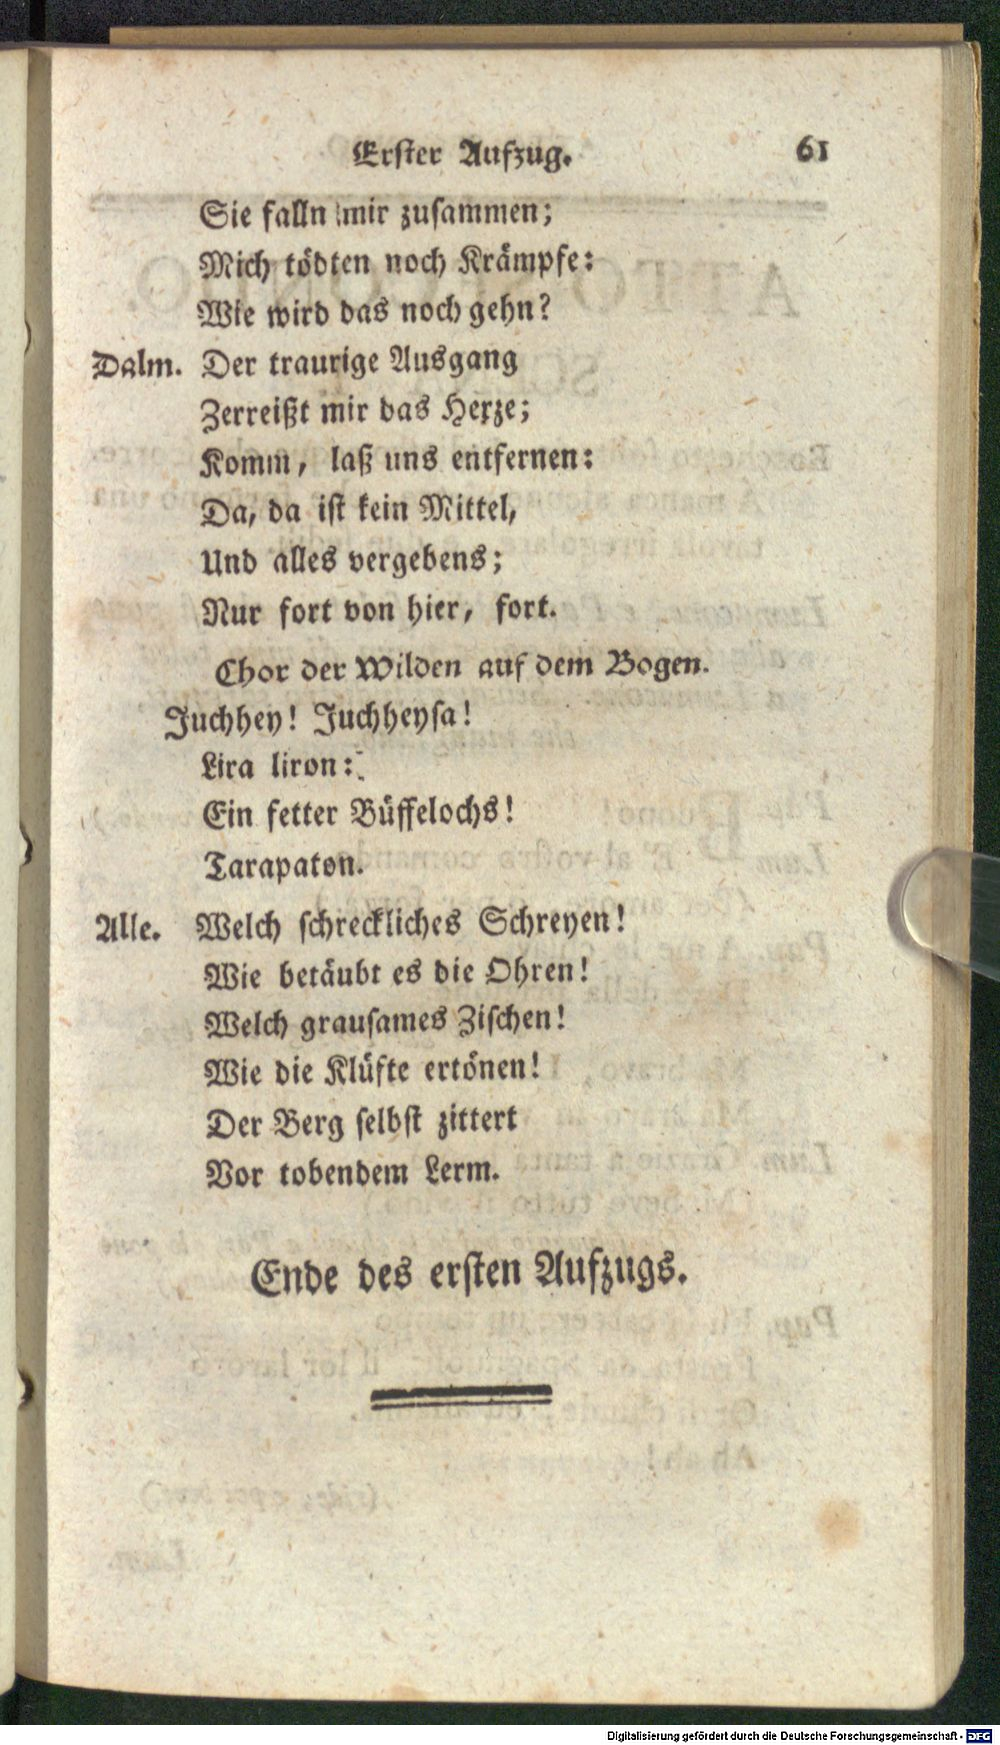 Erster Aufzug. 61
Sie falln mir zusammen;
Mich tödten noch Krämpfe:
Wie wird das noch gehn?
Dalm. Der traurige Ausgang
Zerreißt mir das Herze;
Komm, laß uns entfernen:
Da, da ist kein Mittel,
Und alles vergebens;
Nur fort von hier, fort.
Chor der Wilden auf dem Bogen.
Juchhey! Juchheysa!
Lira liron:
Ein fetter Büffelochs!
Tarapaton.
Alle. Welch schreckliches Schreyen!
Wie betäubt es die Ohren!
Welch grausames Zischen!
Wie die Klüfte ertönen!
Der Berg selbst zittert
Vor tobendem Lerm.
Ende des ersten Aufzugs.
Digitalisierung gefördert durch die Deutsche Forschungsgemeinschaft - DFG